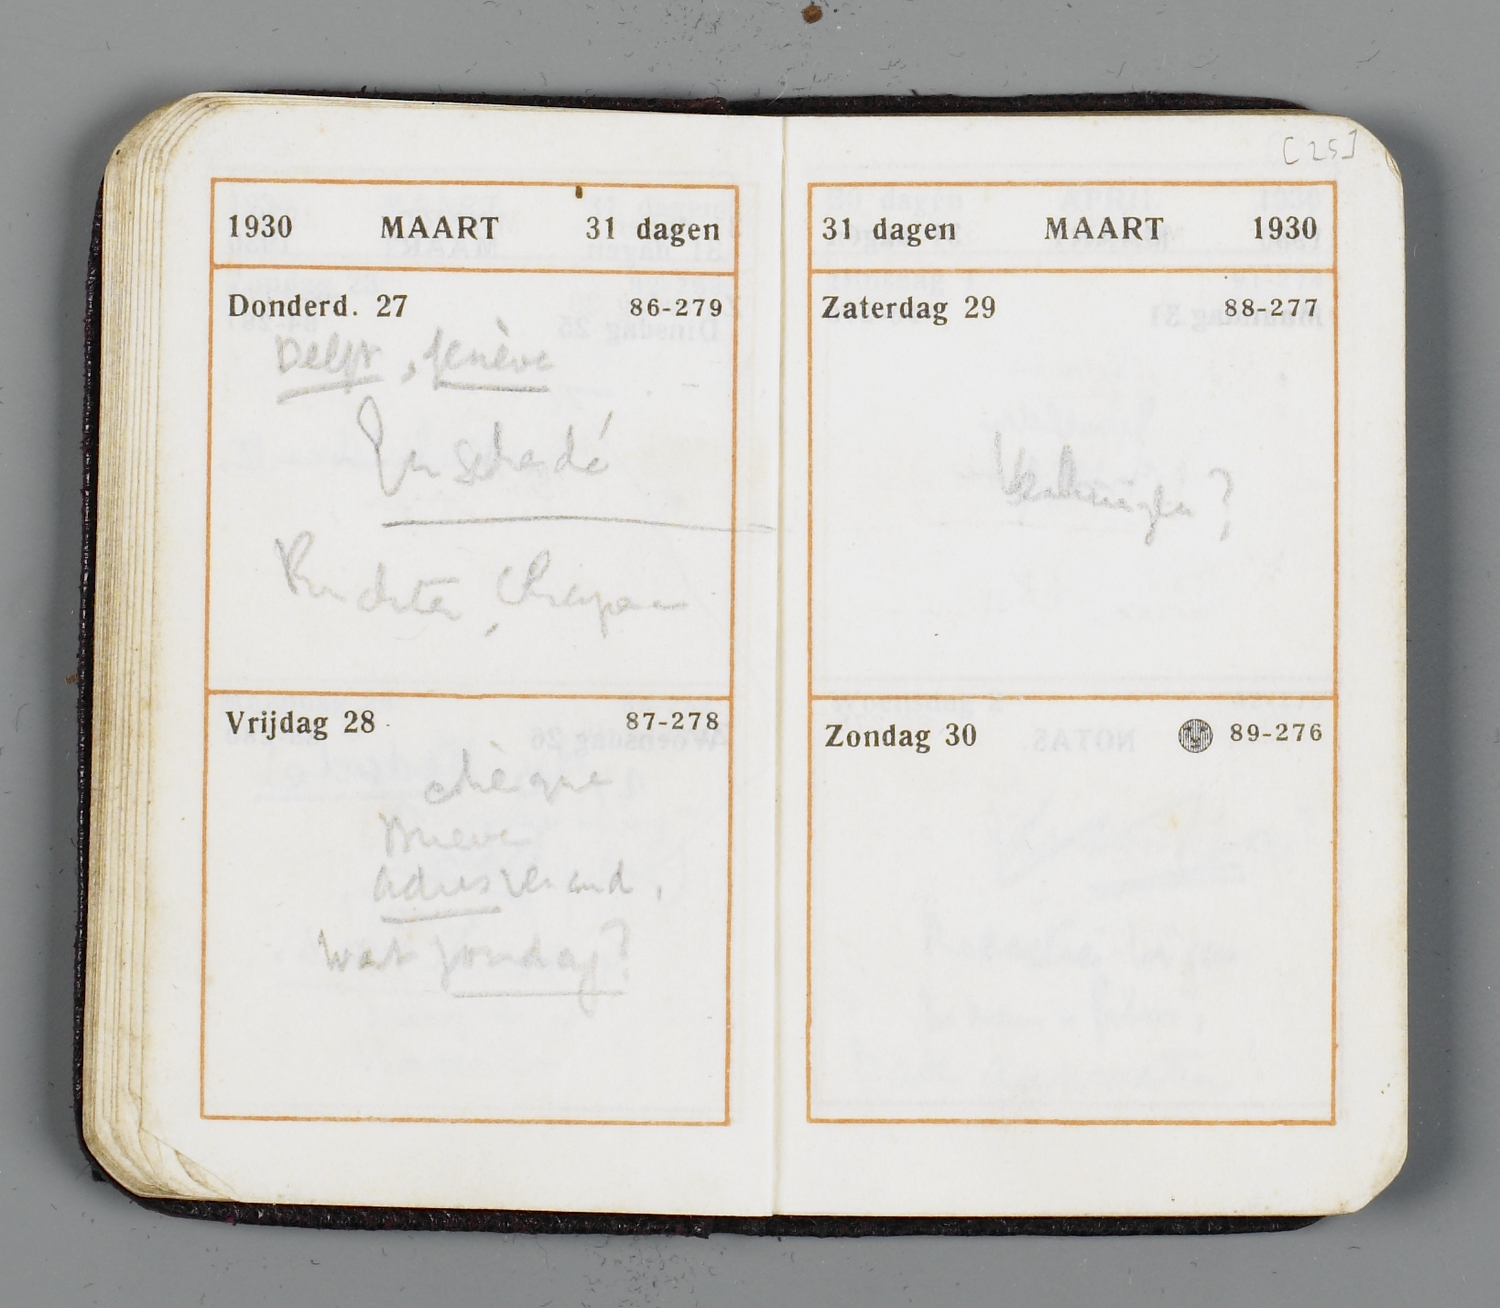 1930 MAART 31 dagen
Donderd. 27 86-279
Delft, Genève
Enschedé
Vrijdag 28 87-278
chèque
Brieve
adresverand.
Wat Zondag?
[25]
31 dagen MAART 1930
Zaterdag 29 88-277
?
Zondag 30 89-276